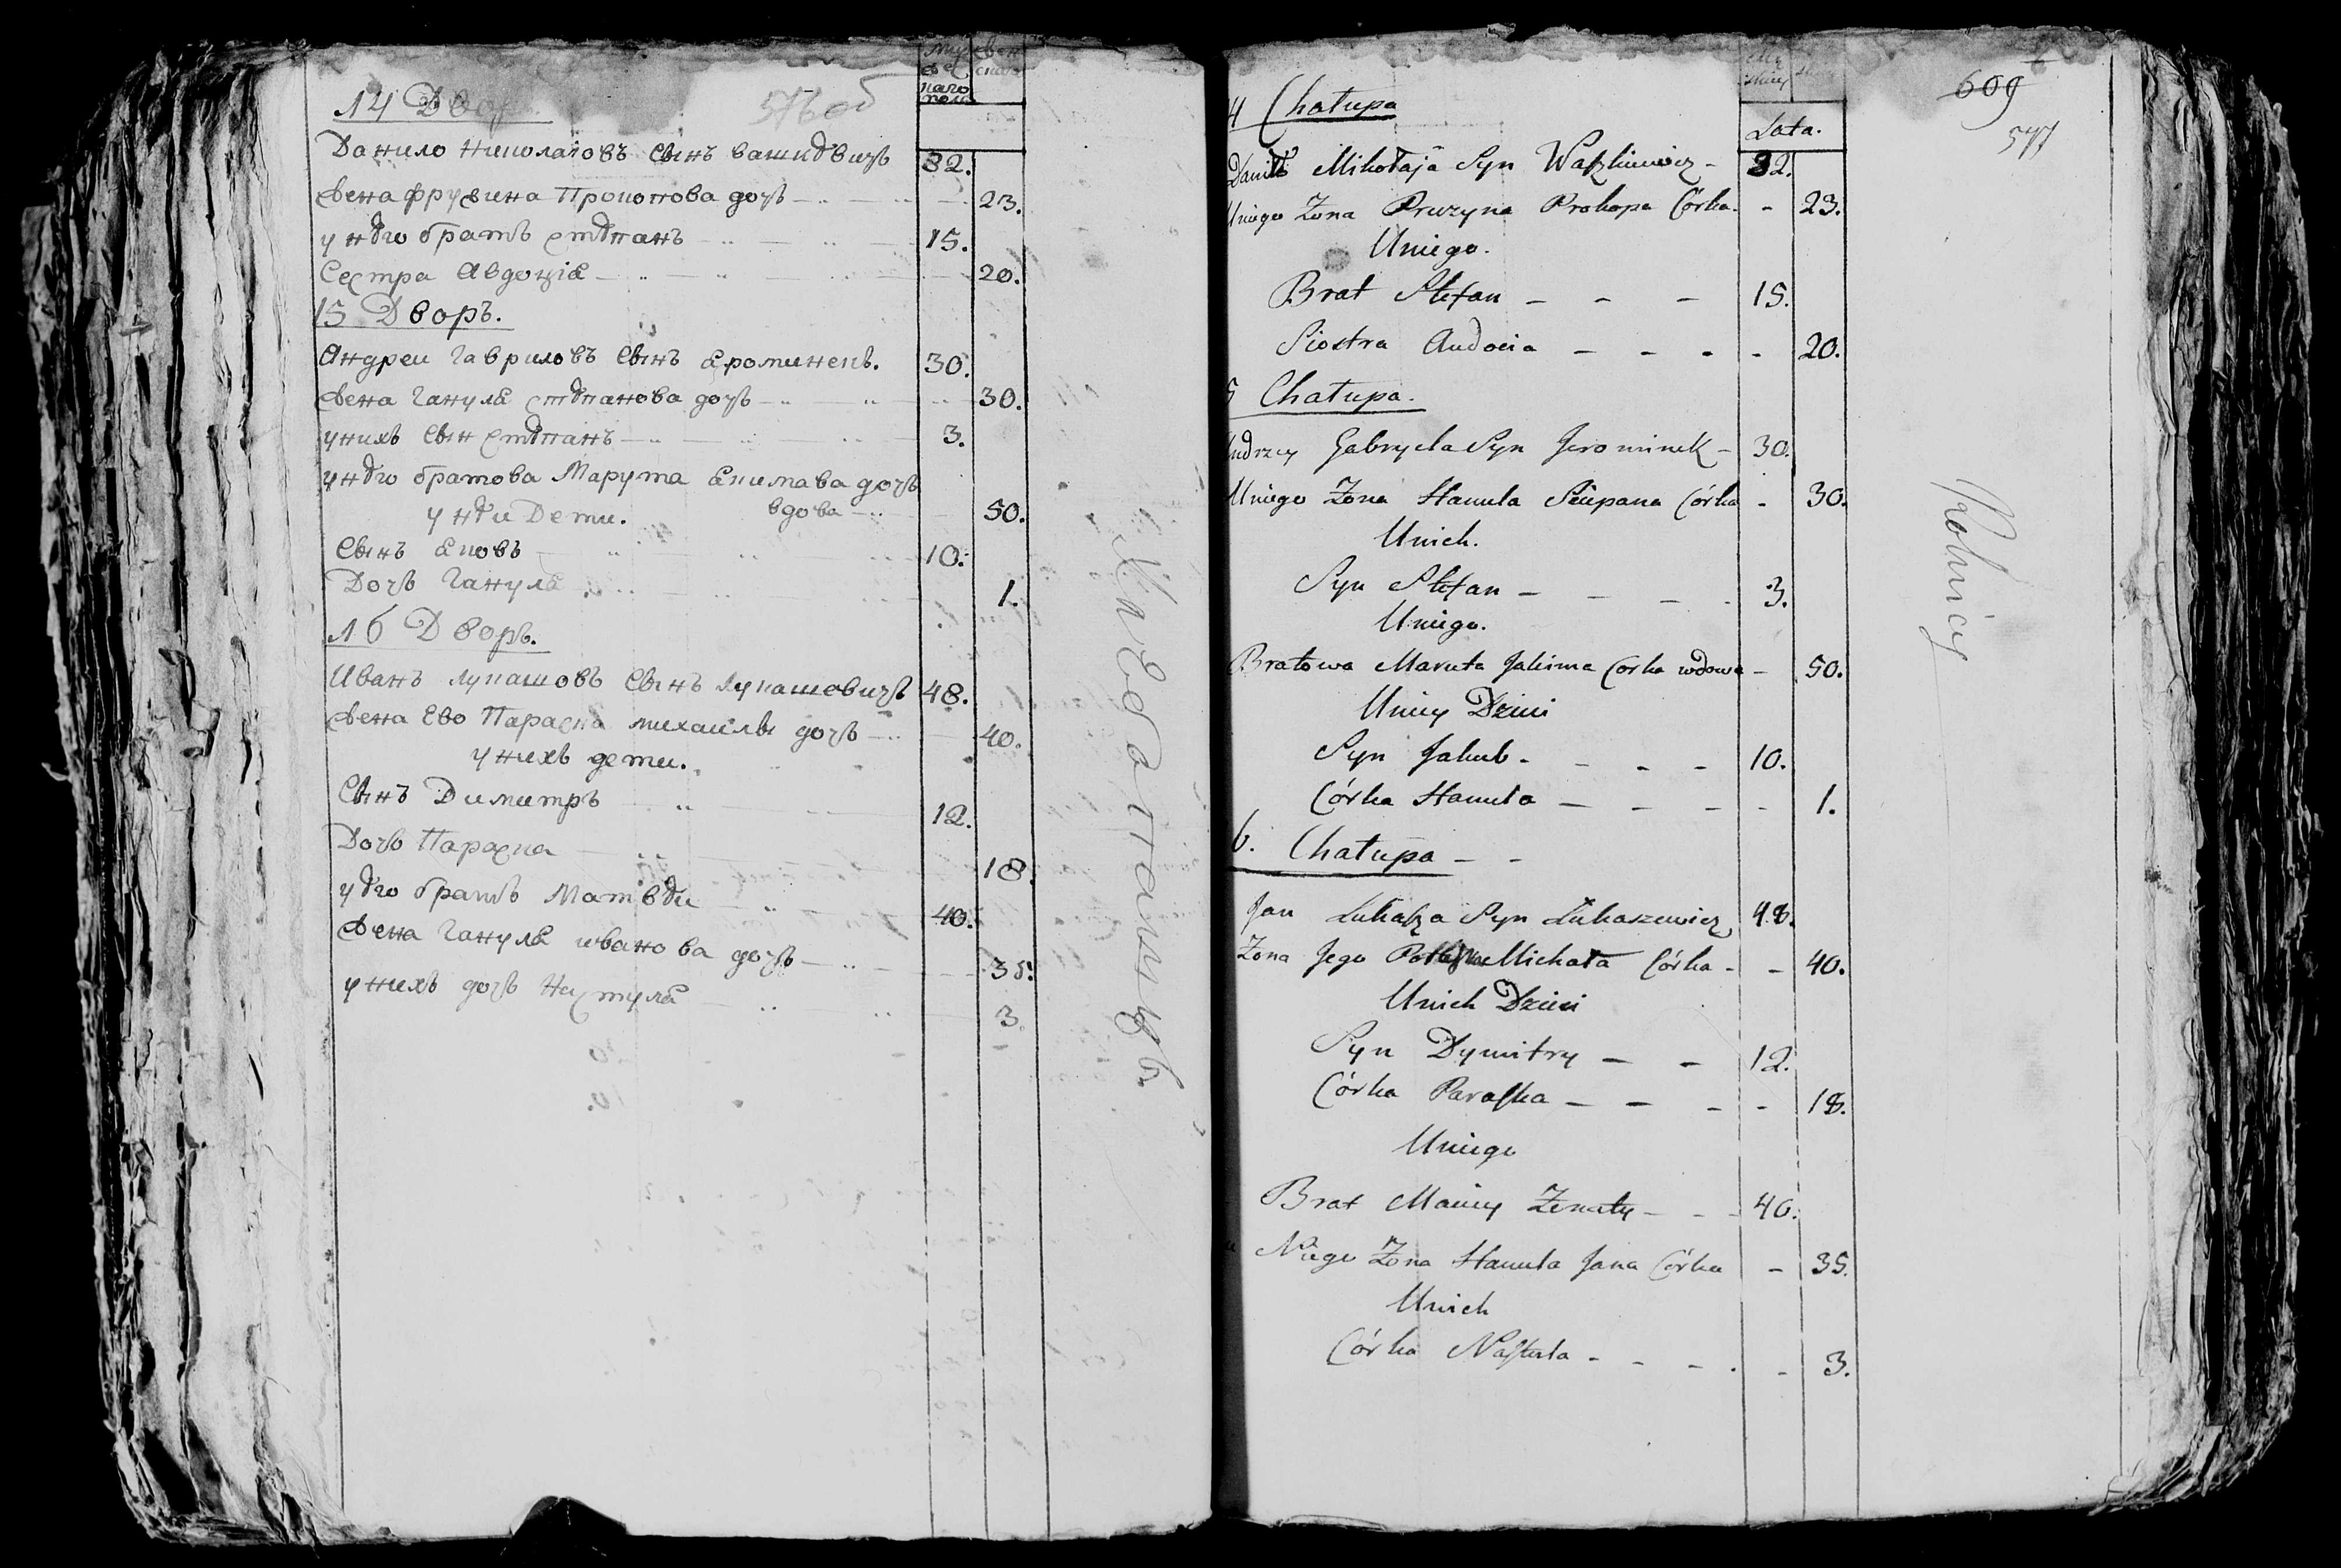 14 Двор
576 об
мужеска
женска
пола
Данило Николаювъ Сынъ Вашкѣвичь 32.
Жена Фрузина Прокопова дочь 23.
у нѣго братъ стѣпанъ 15.
Сестра Авдоція 20.
15 Дворъ.
Андреи Гавриловъ Сынъ Яроминекъ. 30.
Жена Ганула стѣпанова дочь 30.
у нихъ Сын стѣпанъ 3.
у нѣго братова Марута Якимава дочь
вдова 50.
у нѣи Дети.
Сынъ Яковъ 10.
Дочь Ганула 1.
16 Дворъ.
Иванъ Лукашовъ Сынъ Лукашовичь 48.
Жена Ево Параска михаилы дочь 40.
у нихъ дети.
Сынъ Димитръ 12.
Дочь Параска 18.
у ѣго братъ Матвѣи 40.
Жена Ганула иванова дочь 35.
у нихъ дочь Настула 3.
Хлебопашцъ.
609
577
4 Chałupa
Lata.
Daniło Mikołaja Syn Waszkiewicz - 32.
Uniego Zona Pruzyna Prokopa Córka - 23.
Uniego.
Brat Stefan - - - 15.
Siostra Audocia - - - - 20.
5 Chałupa.
Andrzey Gabryela Syn Jerominek - 30.
Uniego Zona Hanuła Sciepana Córka - 30.
Unich.
Syn Stefan - - - - 3.
Uniego.
Bratowa Maruta Jakima Corka wdowa - 50.
Uniey Dzieci
Syn Jakub - - - - 10.
Córka Hanuła - - - - 1.
6. Chałupa - -
Jan Łukasza Syn Łukaszewicz 48.
Zona Jego Michała Córka - - 40.
Unich Dzieci
Syn Dymitry - - 12.
Córka Paraska - - - - 18.
Uniego
Brat Maciey Zenaty - - - 40.
u Niego Zona Hanuła Jana Córka - 35.
Unich
Córka Nastuła - - - - - 3.
Rolnicy